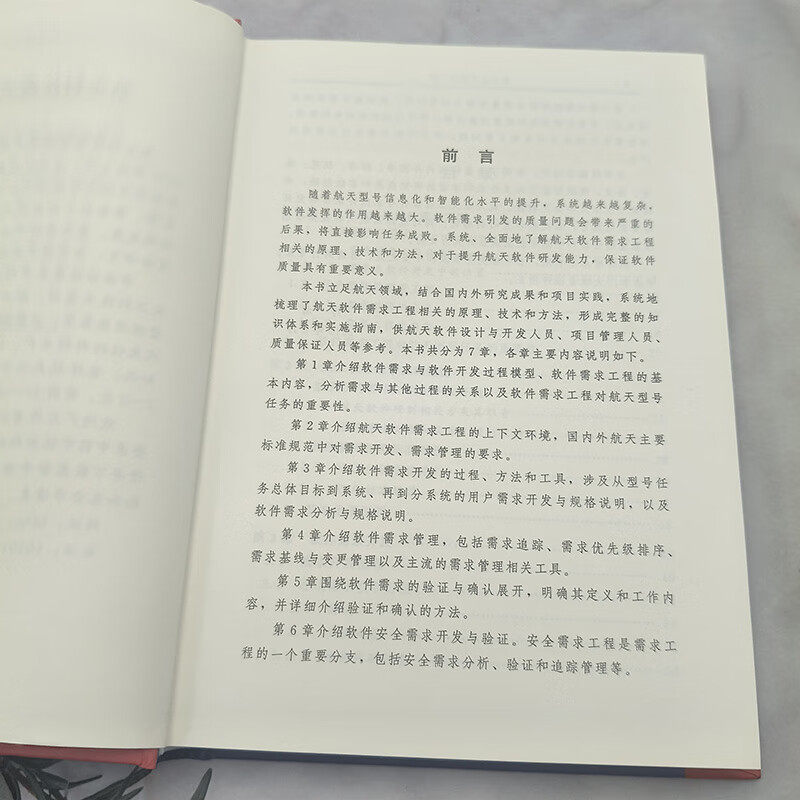 前 言
随着航天型号信息化和智能化水平的提升，系统越来越复杂，
软件发挥的作用越来越大。软件需求引发的质量问题会带来严重的
后果，将直接影响任务成败。系统、全面地了解航天软件需求工程
相关的原理、技术和方法，对于提升航天软件研发能力，保证软件
质量具有重要意义。
本书立足航天领域，结合国内外研究成果和项目实践，系统地
梳理了航天软件需求工程相关的原理、技术和方法，形成完整的知
识体系和实施指南，供航天软件设计与开发人员、项目管理人员、
质量保证人员等参考。本书共分为 7 章，各章主要内容说明如下。
第 1 章介绍软件需求与软件开发过程模型、软件需求工程的基
本内容，分析需求与其他过程的关系以及软件需求工程对航天型号
任务的重要性。
第 2 章介绍航天软件需求工程的上下文环境，国内外航天主要
标准规范中对需求开发、需求管理的要求。
第 3 章介绍软件需求开发的过程、方法和工具，涉及从型号任
务总体目标到系统、再到分系统的用户需求开发与规格说明，以及
软件需求分析与规格说明。
第 4 章介绍软件需求管理，包括需求追踪、需求优先级排序、
需求基线与变更管理以及主流的需求管理相关工具。
第 5 章围绕软件需求的验证与确认展开，明确其定义和工作内
容，并详细介绍验证和确认的方法。
第 6 章介绍软件安全需求开发与验证。安全需求工程是需求工
程的一个重要分支，包括安全需求分析、验证和追踪管理等。